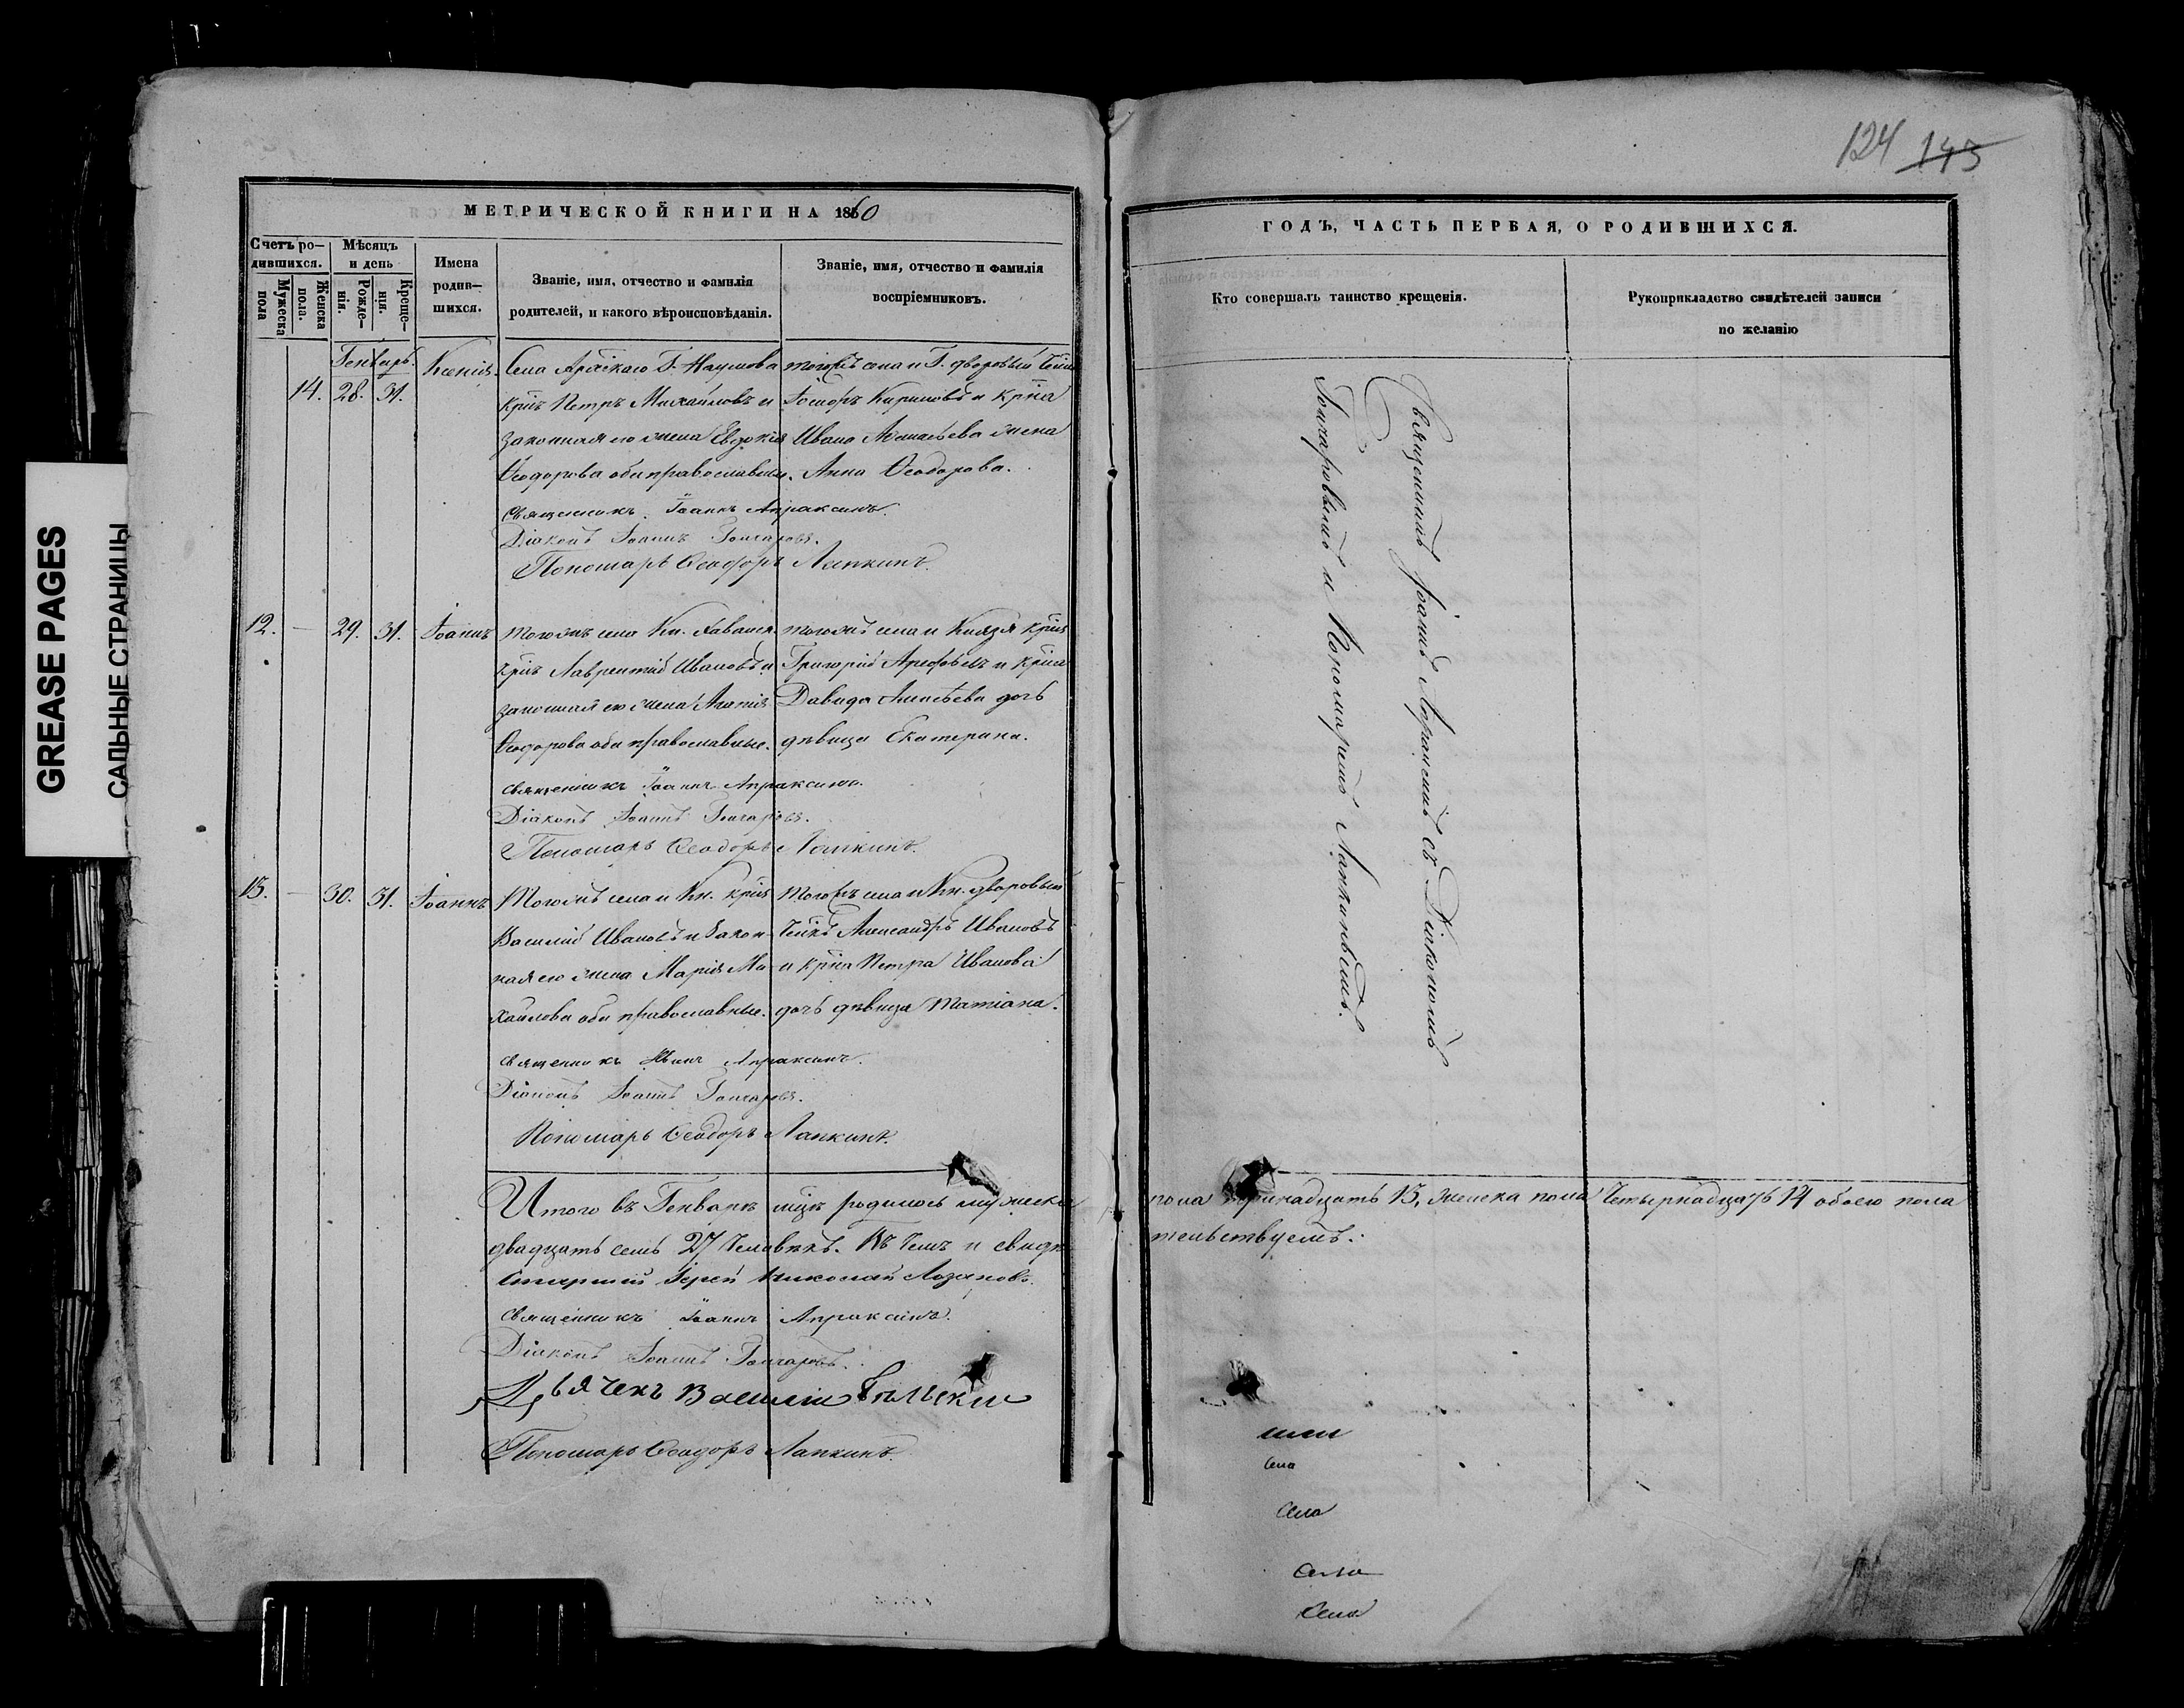 124 143
МЕТРИЧЕСКОЙ КНИГИ НА 1860
Счетъ ро–
дившихся.
Мужеска
пола
Женска
пола.
Мѣсяцъ
и день
Рожде–
нія.
Креще–
нія.
Имена
родив–
шихся.
Званіе, имя, отчество и фамилія
родителей, и какого вѣроисповѣданія.
Званіе, имя, отчество и фамилія
воспріемниковъ.
Генварь.
14. 28. 31.
Ксенія.
Села Г. Наумова
Петръ Михайловъ и
законная его жена Евдокія
Ѳеодорова оба православные.
тогожъ села и Г. дворовый
Кириловъ и
Ивана жена
Анна Ѳеодорова.
Священникъ Іоаннъ Апраксинъ.
Діаконъ Іоаннъ Гончаровъ.
Пономарь Ѳеодоръ Лапкинъ.
12. — 29. 31. Іоаннъ
Тогожъ села Кн.
Лаврентій Ивановъ и
законная его жена
Ѳеодорова оба православные.
тогожъ села и Князя
Григорій и
Давида дочь
дѣвица Екатерина.
Священникъ Іоаннъ Апраксинъ.
Діаконъ Іоаннъ Гончаровъ.
Пономарь Ѳеодоръ Лапкинъ.
13. — 30. 31. Іоаннъ
Тогожъ села и Кн.
Василій Ивановъ и закон–
ная его жена Марія Ми–
хайлова оба православные.
тогожъ села и Кн. дворовый
Александръ Ивановъ
и Петра Иванова
дочь дѣвица Татіана.
Священникъ Іоаннъ Апраксинъ.
Діаконъ Іоаннъ Гончаровъ.
Пономарь Ѳеодоръ Лапкинъ.
Итого въ Генварѣ мцѣ родилось мужеска
двадцать семь 27 человѣкъ. Въ чемъ и свидѣ
Старшій Іерей Николай Лозановъ.
Священникъ Іоаннъ Апраксинъ.
Діаконъ Іоаннъ Гончаровъ.
Дьячекъ Василій
Пономарь Ѳеодоръ Лапкинъ.
ГОДЪ, ЧАСТЬ ПЕРВАЯ, О РОДИВШИХСЯ.
Кто совершалъ таинство крещенія.
Рукоприкладство свидѣтелей записи
по желанію
Священникъ Іоаннъ Апраксинъ съ Діакономъ
Гончаровымъ и Пономаремъ Лапкинымъ.
пола тринадцать 13, женска пола четырнадцать 14 обоего пола
тельствуемъ.
Села
Села
Села
Села
GREASE PAGES
САЛЬНЫЕ СТРАНИЦЫ